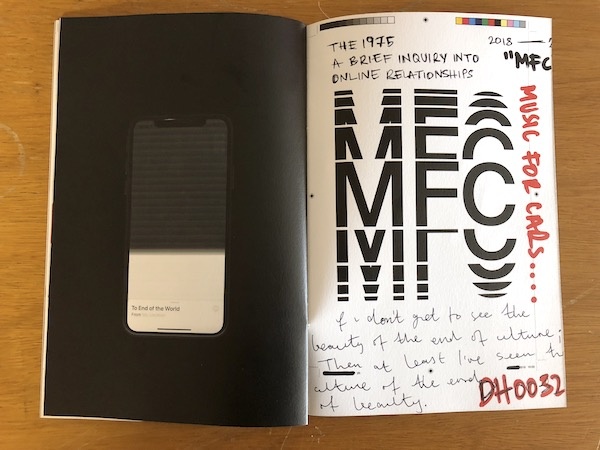 To End of the World
THE 1975
A BRIEF INQUIRY INTO
ONLINE RELATIONSHIPS
2018
"MFC
MUSIC FOR CARS.....
MFC
if i don't get to see the
beauty of the end of culture;
Then at least I've seen th
culture of the end
of beauty.
DH0032